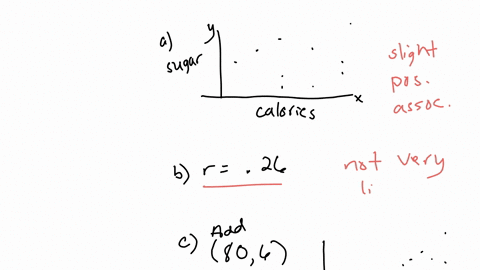 a)
y
sugar
x
calories
slight
pos.
assoc.
b) r = .26
not very
li
c) Add
(80,6)